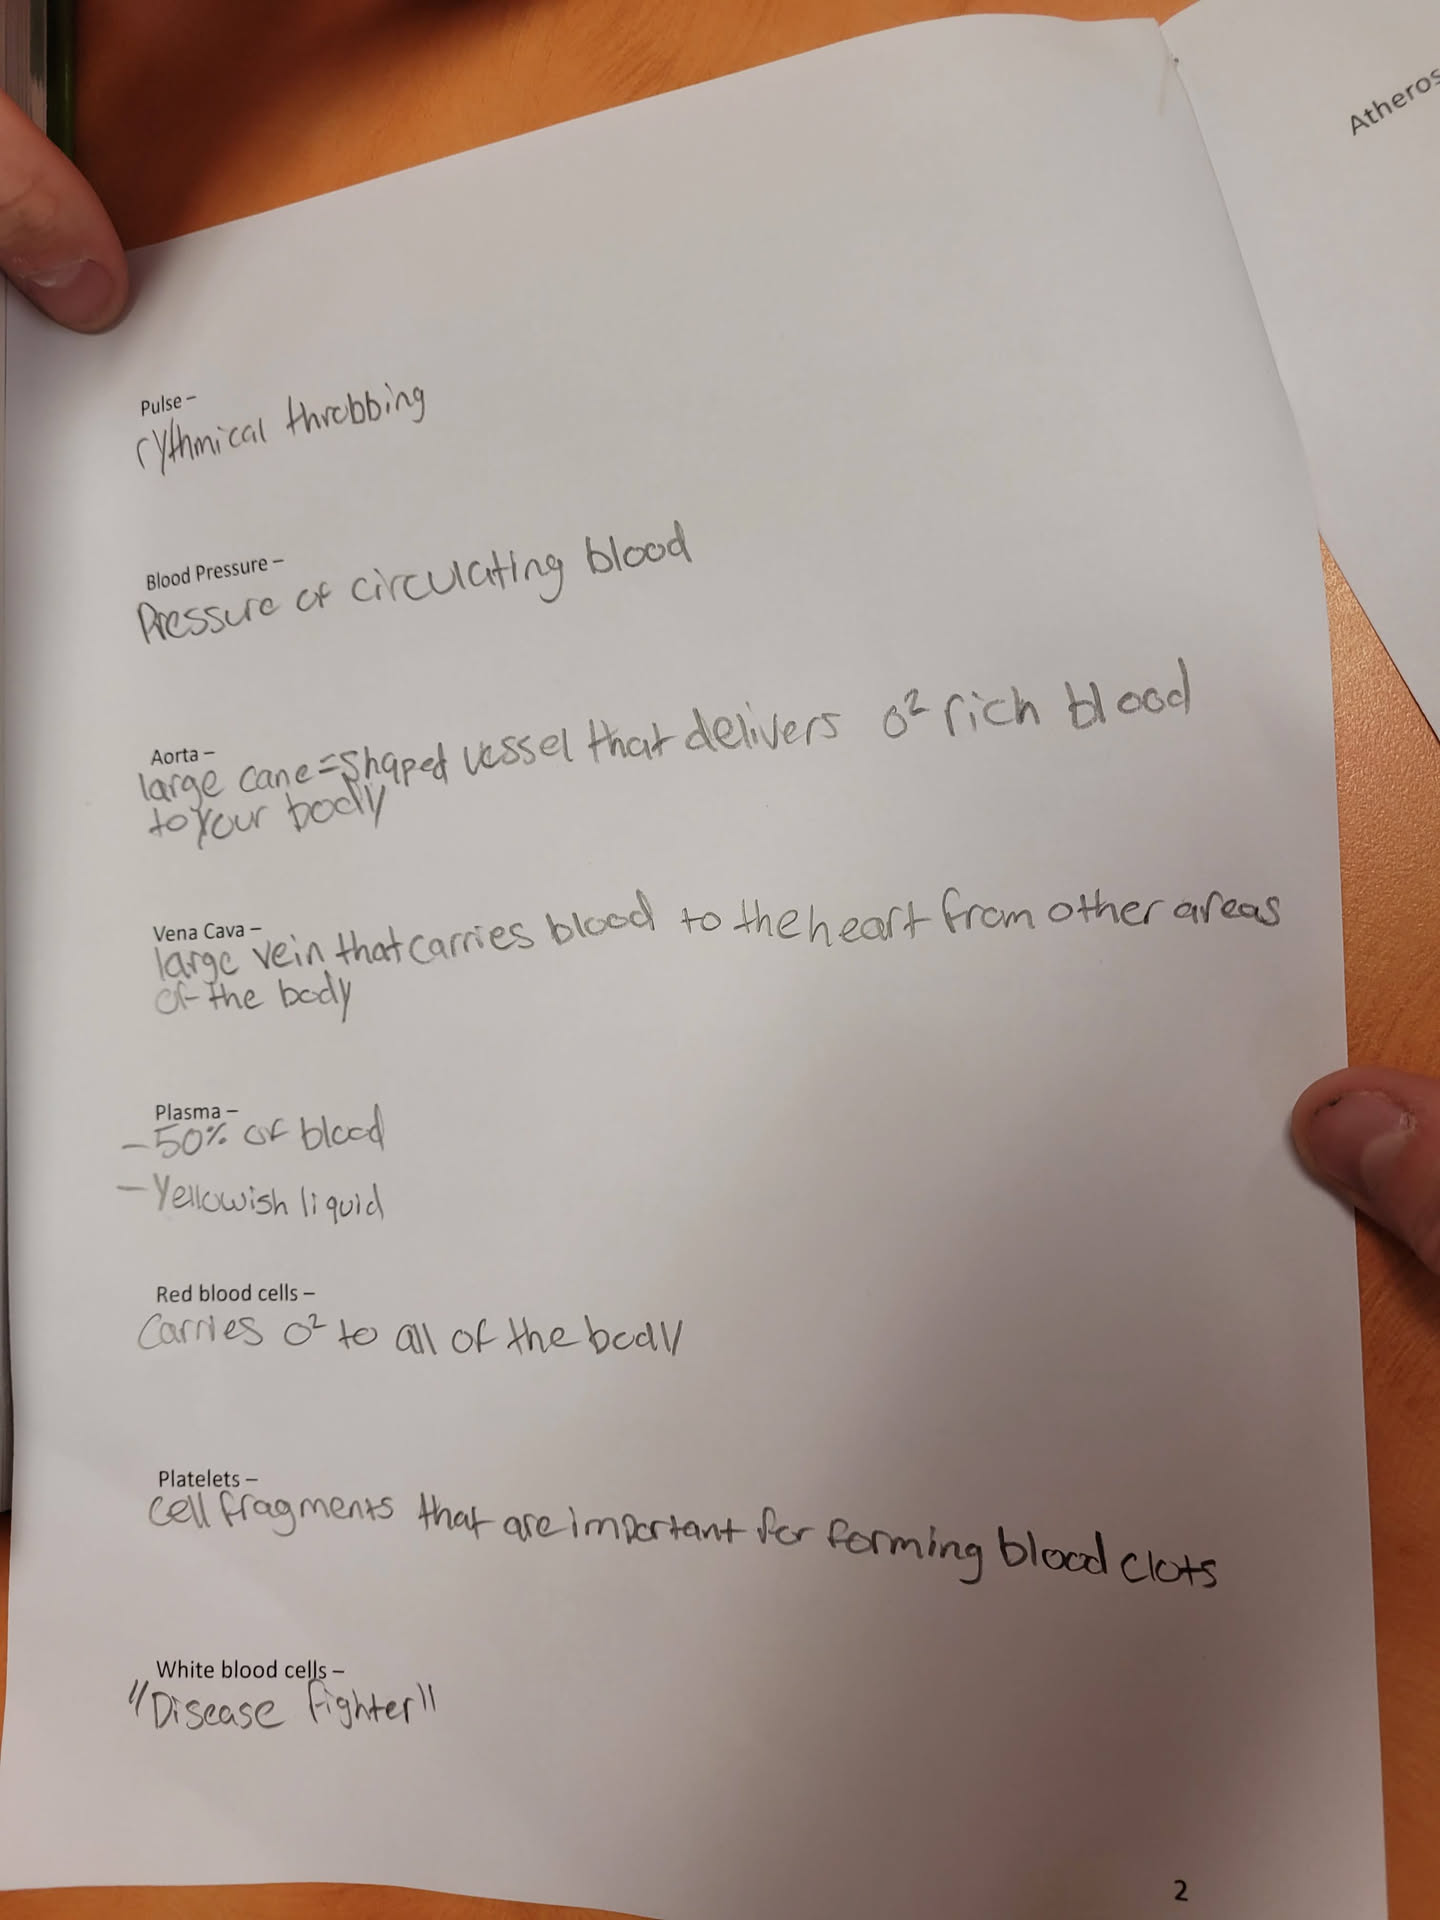 Atheros
Pulse –
rythmical throbbing
Blood Pressure –
Pressure of circulating blood
Aorta –
large cane=shaped vessel that delivers o² rich blood
to your body
Vena Cava –
large vein that carries blood to the heart from other areas
of the body
Plasma –
– 50% of blood
– Yellowish liquid
Red blood cells –
Carries o² to all of the body
Platelets –
Cell fragments that are important for forming blood clots
White blood cells –
"Disease fighter"
2